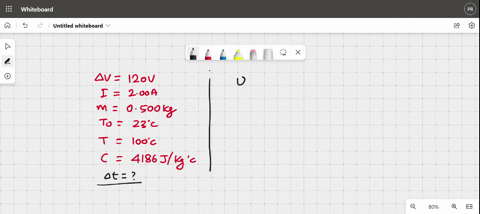 Whiteboard
PR
Untitled whiteboard
ΔV = 120V
I = 2.00A
m = 0.500kg
To = 23°C
T = 100°C
C = 4186 J/kg°C
Δt = ?
U
80%